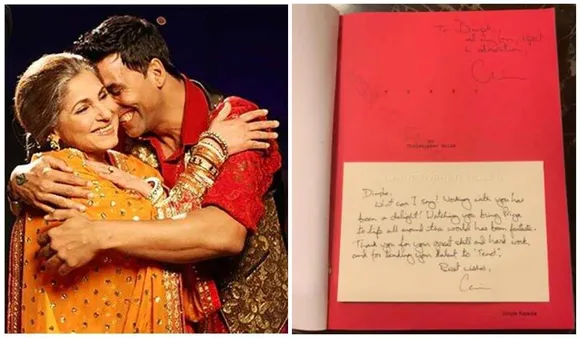 To Dimple,
TENET
by
Christopher Nolan
Dimple,
What can I say? Working with you has
been a delight! Watching you bring Priya
to life all around the world has been fantastic.
Thank you for your great skill and hard work,
and for lending your talent to 'Tenet'.
Best wishes,
Dimple Kapadia